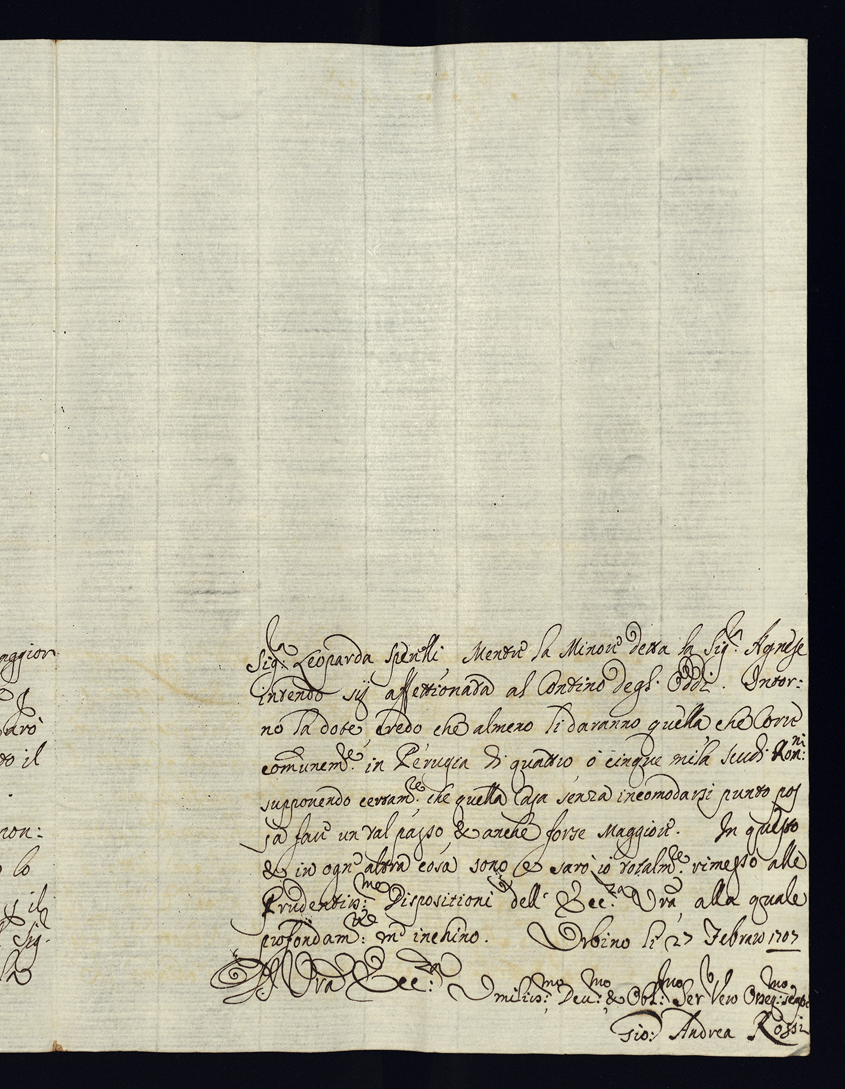 aggior
sarò
to il
non:
lo
il
Sig:
la
Sig.ra Leoparda Sperelli Mentre la Minore detta la Sig.ra Agnese
intendo sij affettionata al Contino degl' Oddi. Intor:
no la dote credo che almeno li daranno quella che corre
comunem.te in Perugia di quattro ò cinque mila scudi Rom:ni
supponendo certam.te che quella Casa senza incomodarsi punto pos
sa fare un tal passo & anche forse Maggiore. In questo
& in ogn' altra cosa sono e sarò io totalm.te rimesso alle
Prudentiss:me Dispositioni dell' Ecc:za Vra alla quale
profondam:te m' inchino. Urbino li 27 Febraro 1707
D Vra Ecc:za
Umiliss:mo Deu:mo & Obl:mo Ser Vero Osseq:mo sempre
Gio: Andrea Rossi